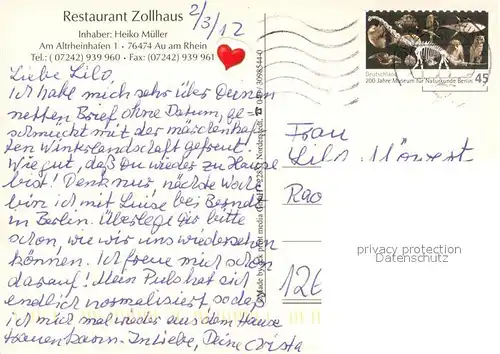 Restaurant Zollhaus
Inhaber: Heiko Müller
Am Altrheinhafen 1 • 76474 Au am Rhein
Tel.: (07242) 939 960 • Fax: (07242) 939 961
2/3/12
Liebe Lilo,
ich habe mich sehr über Deinen
netten Brief ohne Datum, ge-
schmückt mit der märchenhaf-
ten Winterlandschaft gefreut.
Wie gut, daß Du wieder zu Hause
bist! Denk nur, nächste Woche
bin ich mit Luise bei Bernd
in Berlin. Überlege Dir bitte
schon, wie wir uns wiedersehen
können. Ich freue mich schon
darauf! Mein Puls hat sich
endlich normalisiert, so daß
ich mich mal wieder aus dem Hause
trauen kann. In Liebe, Deine Christa
Deutschland
200 Jahre Museum für Naturkunde Berlin
45
Frau
Lilo
privacy protection
Datenschutz